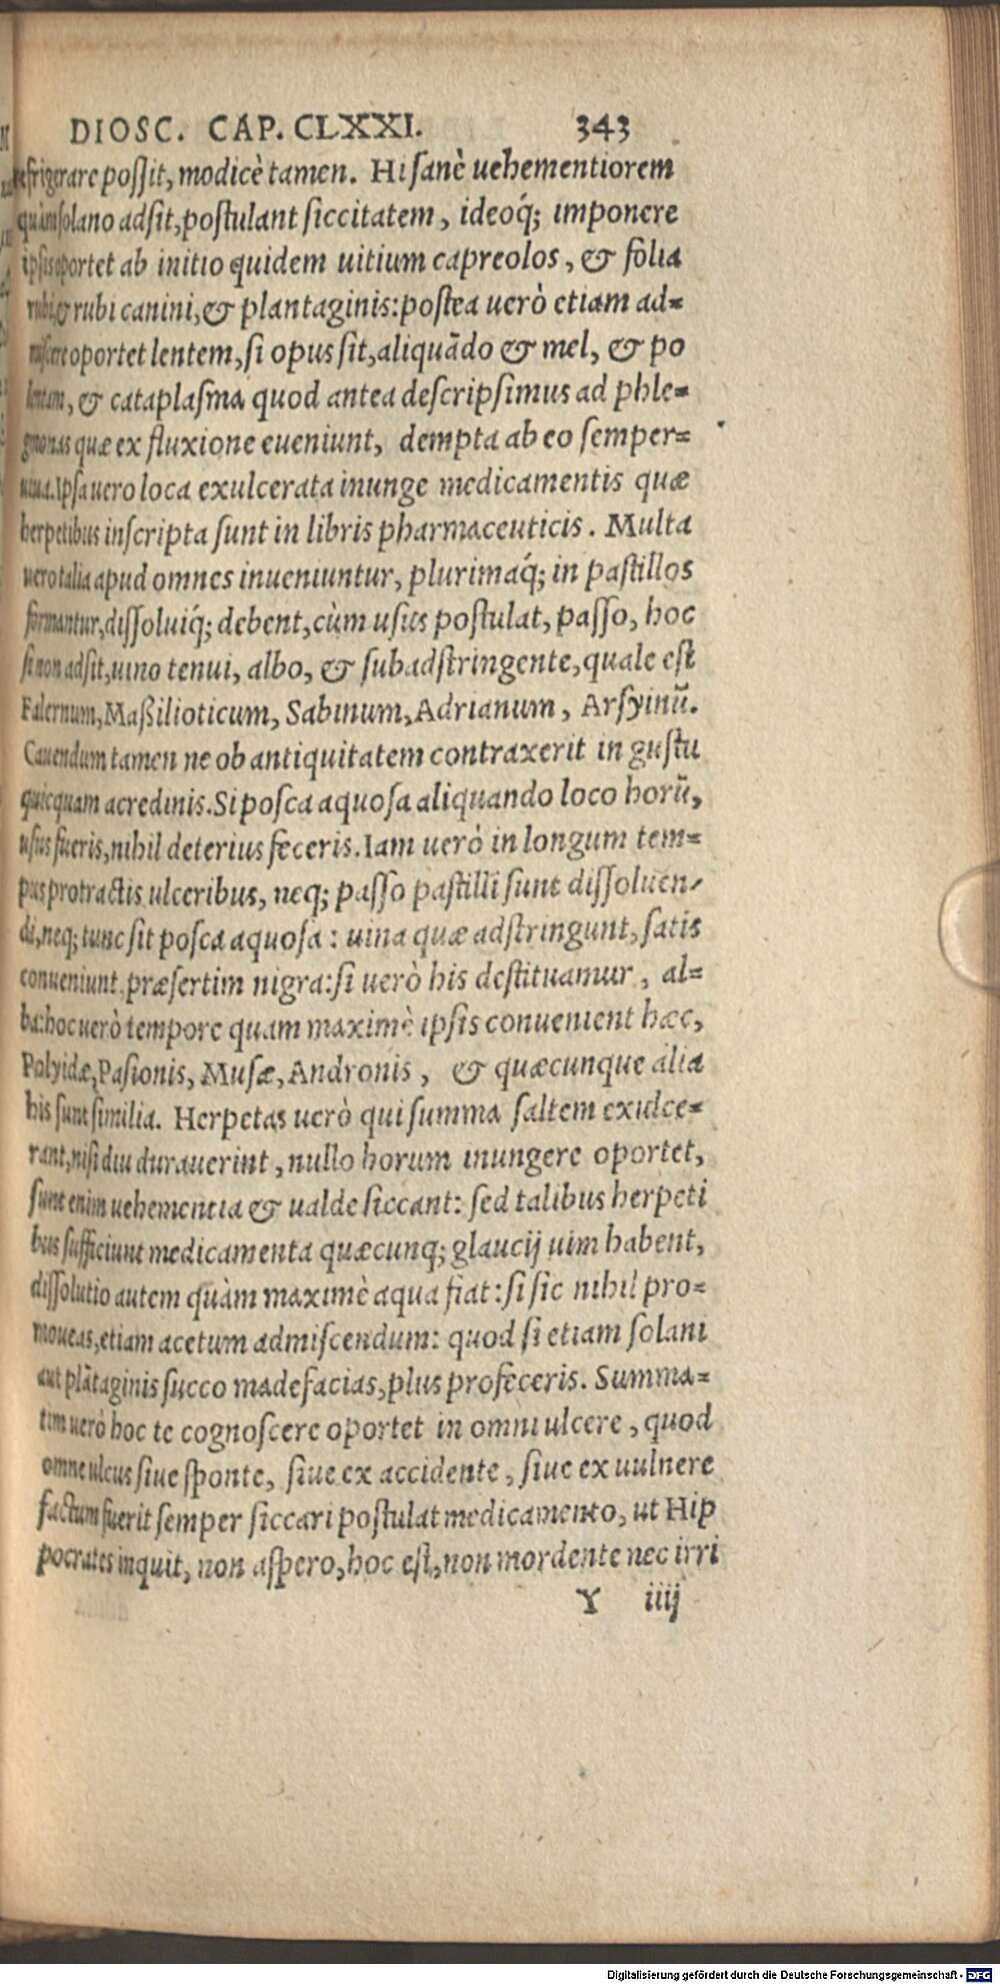 DIOSC. CAP. CLXXI. 343
refrigerare possit, modicè tamen. Hi sanè uehementiorem
quàm solano adsit, postulant siccitatem, ideoq́; imponere
ipsis oportet ab initio quidem uitium capreolos, & folia
rubi, & rubi canini, & plantaginis: postea uerò etiam ad=
miscere oportet lentem, si opus sit, aliquãdo & mel, & po
lentam, & cataplasma quod antea descripsimus ad phle=
gmonas quæ ex fluxione eueniunt, dempta ab eo semper=
uiua. Ipsa uero loca exulcerata inunge medicamentis quæ
herpetibus inscripta sunt in libris pharmaceuticis. Multa
uero talia apud omnes inueniuntur, plurimaq́; in pastillos
formantur, dissoluiq́; debent, cùm usus postulat, passo, hoc
si non adsit, uino tenui, albo, & subadstringente, quale est
Falernum, Maßilioticum, Sabinum, Adrianum, Arsyinũ.
Cauendum tamen ne ob antiquitatem contraxerit in gustu
quicquam acredinis. Si posca aquosa aliquando loco horũ,
usus fueris, nihil deterius feceris. Iam uerò in longum tem=
pus protractis ulceribus, neq; passo pastilli sunt dissoluen-
di, neq; tunc sit posca aquosa: uina quæ adstringunt, satis
conueniunt, præsertim nigra: si uerò his destituamur, al=
ba: hoc uerò tempore quam maximè ipsis conuenient hæc,
Polyidæ, Pasionis, Musæ, Andronis, & quæcunque alia
his sunt similia. Herpetas uerò qui summa saltem exulce=
rant, nisi diu durauerint, nullo horum inungere oportet,
sunt enim uehementia & ualde siccant: sed talibus herpeti
bus sufficiunt medicamenta quæcunq; glaucij uim habent,
dissolutio autem quàm maximè aqua fiat: si sic nihil pro=
moueas, etiam acetum admiscendum: quod si etiam solani
aut plãtaginis succo madefacias, plus profeceris. Summa=
tim uerò hoc te cognoscere oportet in omni ulcere, quod
omne ulcus siue sponte, siue ex accidente, siue ex uulnere
factum fuerit semper siccari postulat medicamento, ut Hip
pocrates inquit, non aspero, hoc est, non mordente nec irri
Y iiij
Digitalisierung gefördert durch die Deutsche Forschungsgemeinschaft - DFG